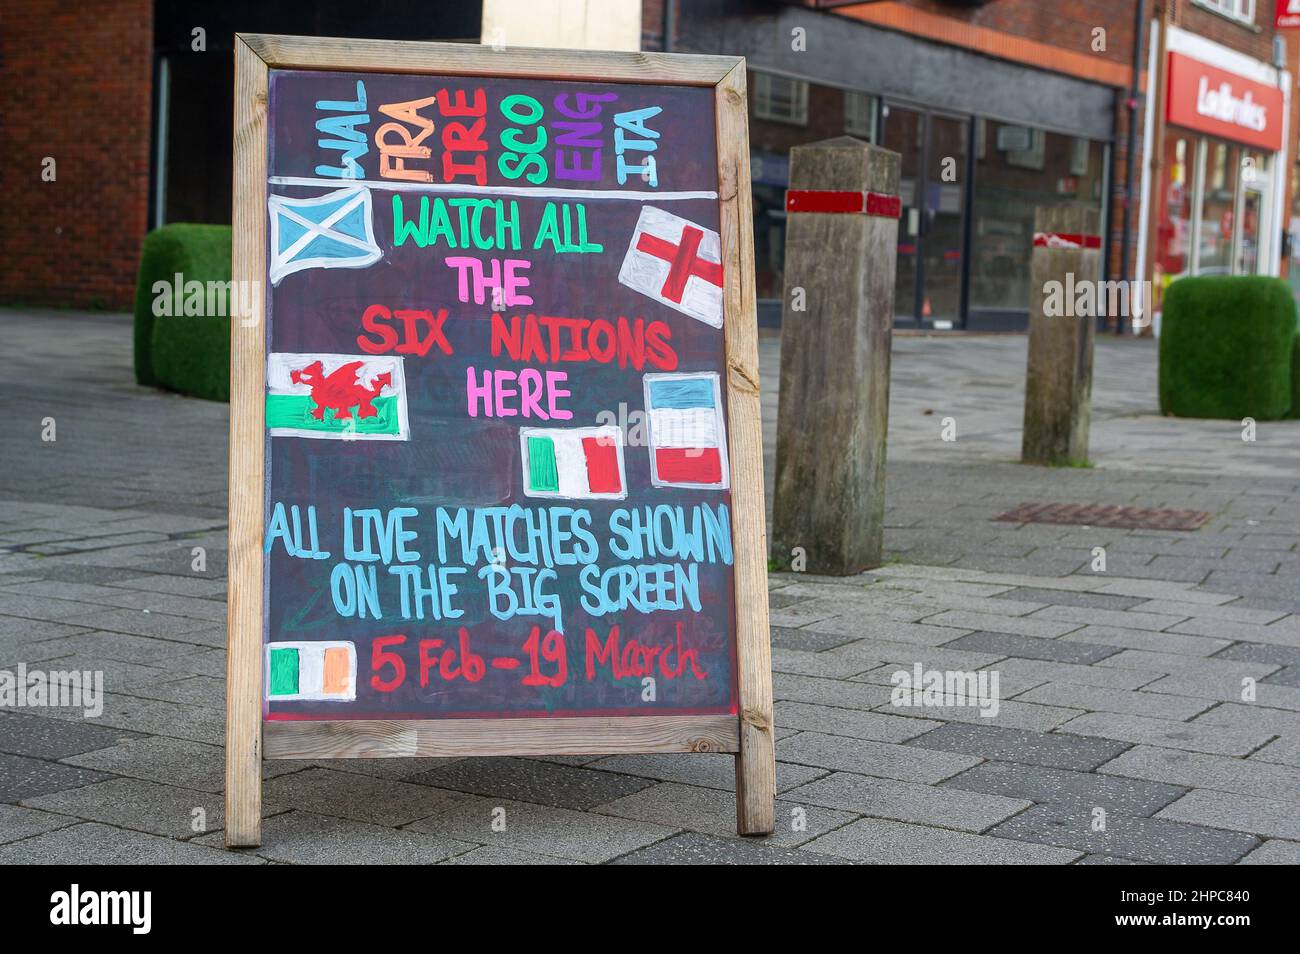 WAL FRA IRE SCO ENG ITA
WATCH ALL
THE
SIX NATIONS
HERE
ALL LIVE MATCHES SHOWN
ON THE BIG SCREEN
5 Feb - 19 March
Ladbrokes
alamy
Image ID: 2HPC840
www.alamy.com